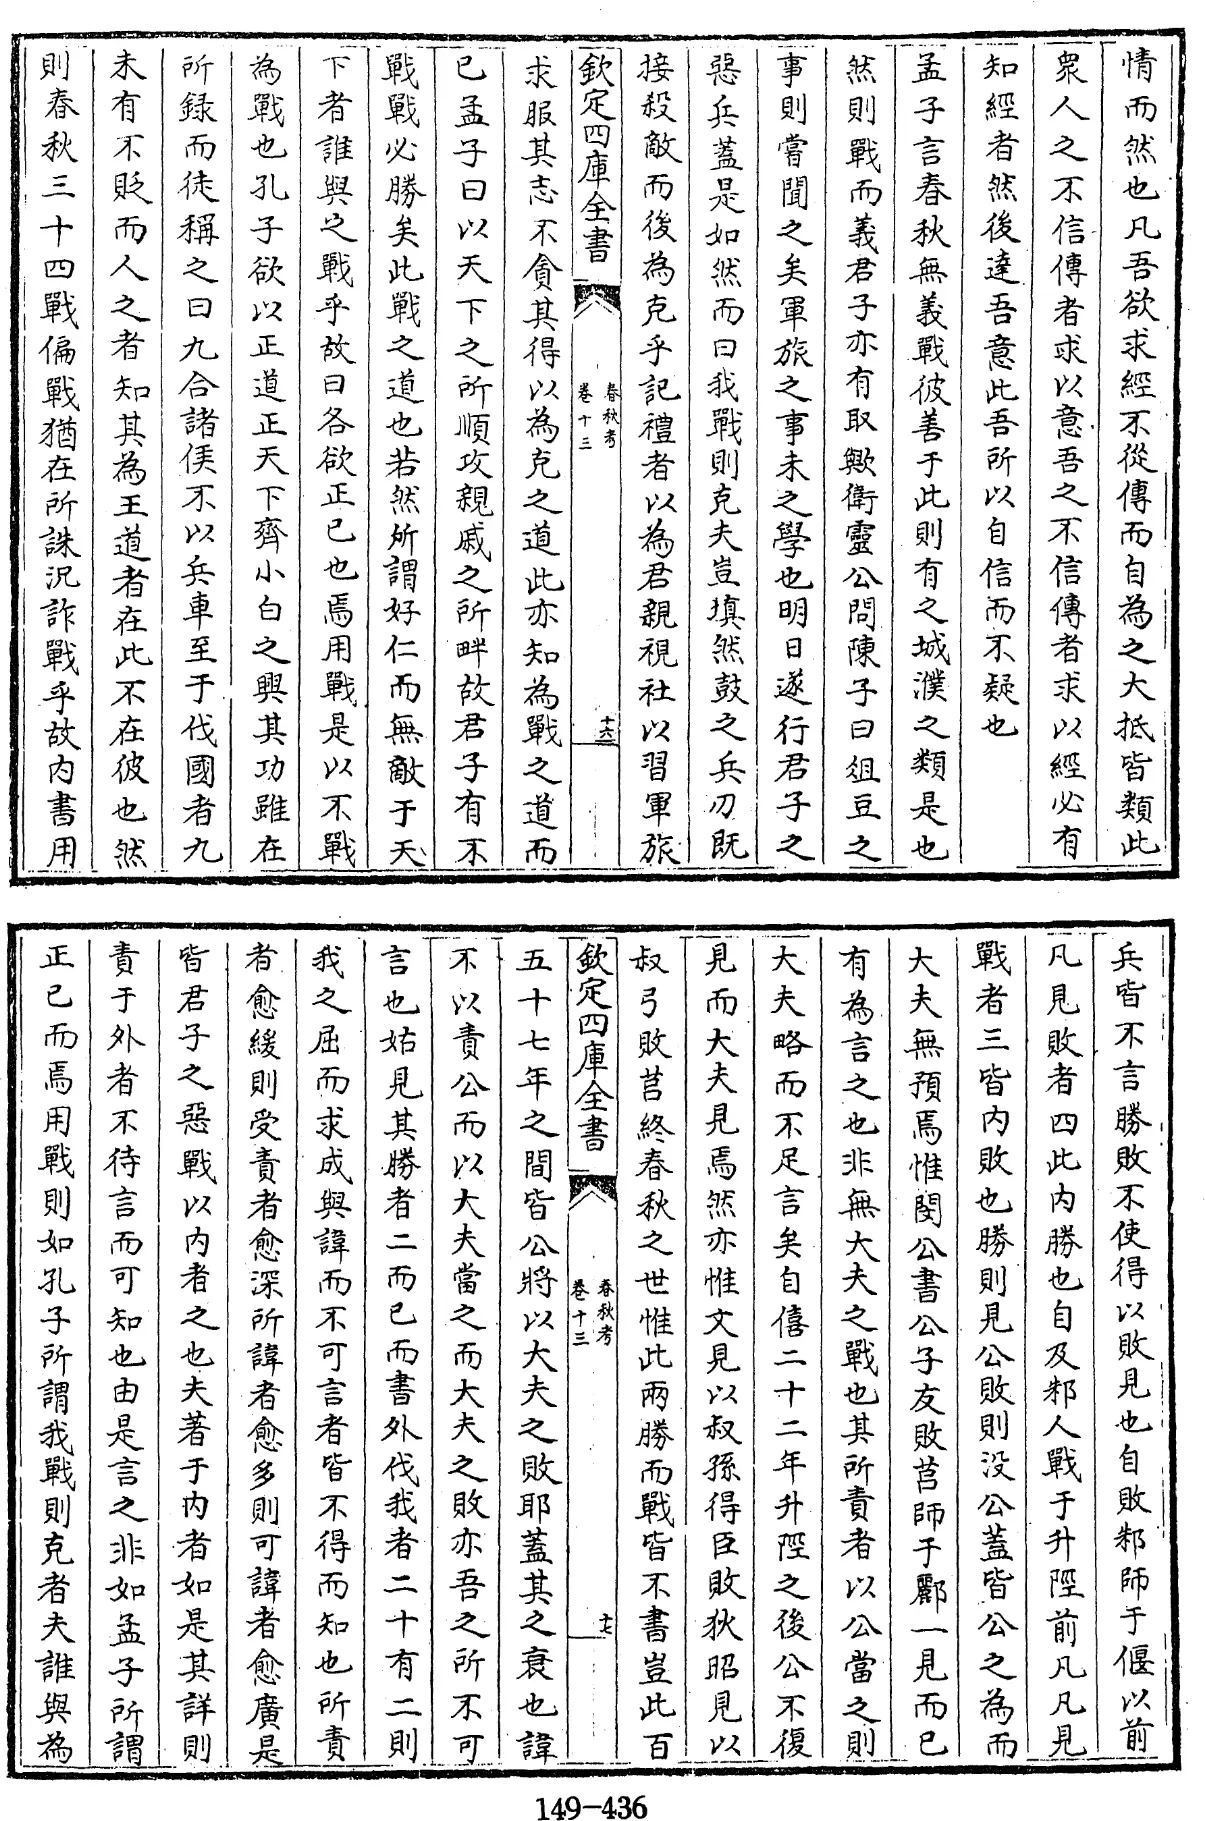 情而然也凡吾欲求經不從傳而自為之大抵皆類此
衆人之不信傳者求以意吾之不信傳者求以經必有
知經者然後達吾意此吾所以自信而不疑也
孟子言春秋無義戰彼善于此則有之城濮之類是也
然則戰而義君子亦有取歟衛靈公問陳子曰俎豆之
事則嘗聞之矣軍旅之事未之學也明日遂行君子之
惡兵蓋是如然而曰我戰則克夫豈填然鼓之兵刃既
接殺敵而後為克乎記禮者以為君親視社以習軍旅
欽定四庫全書
春秋考
卷十三
十六
求服其志不貪其得以為克之道此亦知為戰之道而
已孟子曰以天下之所順攻親戚之所畔故君子有不
戰戰必勝矣此戰之道也若然所謂好仁而無敵于天
下者誰與之戰乎故曰各欲正已也焉用戰是以不戰
為戰也孔子欲以正道正天下齊小白之興其功雖在
所録而徒稱之曰九合諸侯不以兵車至于伐國者九
未有不貶而人之者知其為王道者在此不在彼也然
則春秋三十四戰偏戰猶在所誅況詐戰乎故内書用
兵皆不言勝敗不使得以敗見也自敗邾師于偃以前
凡見敗者四此内勝也自及邾人戰于升陘前凡凡見
戰者三皆内敗也勝則見公敗則没公蓋皆公之為而
大夫無預焉惟閔公書公子友敗莒師于酈一見而已
有為言之也非無大夫之戰也其所責者以公當之則
大夫略而不足言矣自僖二十二年升陘之後公不復
見而大夫見焉然亦惟文見以叔孫得臣敗狄昭見以
叔弓敗莒終春秋之世惟此兩勝而戰皆不書豈此百
欽定四庫全書
春秋考
卷十三
十七
五十七年之間皆公將以大夫之敗耶蓋其之衰也諱
不以責公而以大夫當之而大夫之敗亦吾之所不可
言也姑見其勝者二而已而書外伐我者二十有二則
我之屈而求成與諱而不可言者皆不得而知也所責
者愈緩則受責者愈深所諱者愈多則可諱者愈廣是
皆君子之惡戰以内者之也夫著于内者如是其詳則
責于外者不待言而可知也由是言之非如孟子所謂
正已而焉用戰則如孔子所謂我戰則克者夫誰與為
149-436